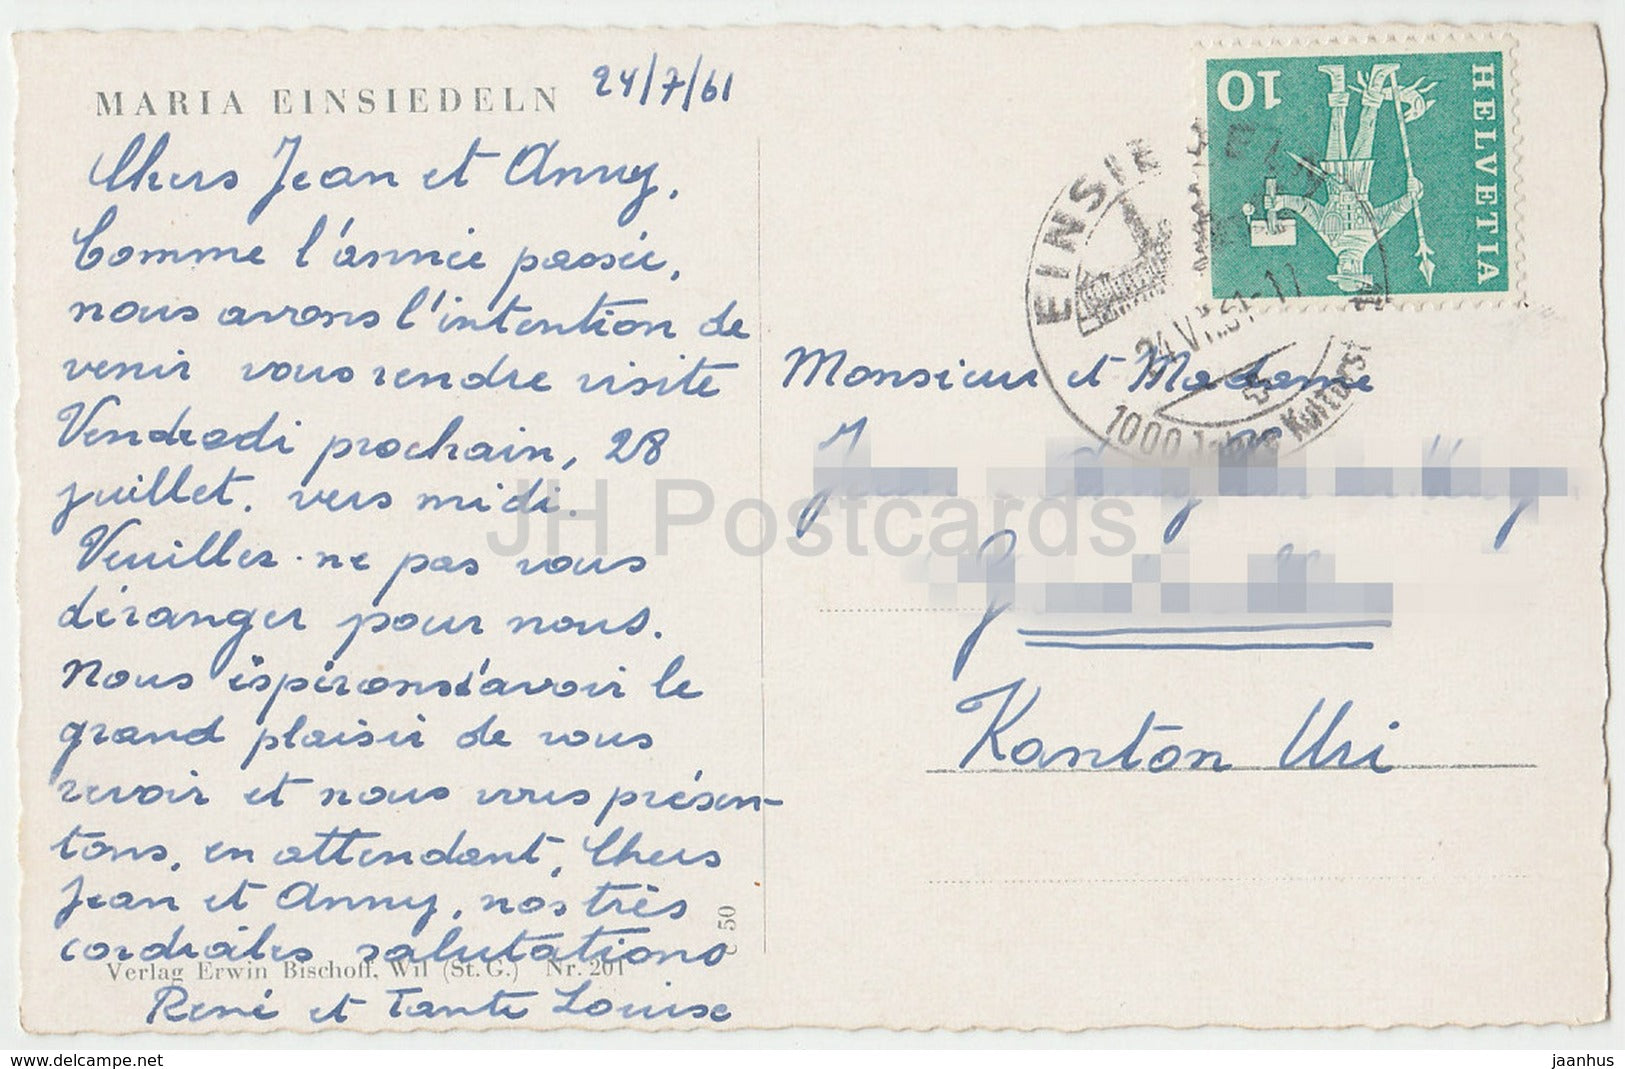 MARIA EINSIEDELN
24/7/61
Chers Jean et Anny,
Comme l'année passée,
nous avons l'intention de
venir vous rendre visite
Vendredi prochain, 28
juillet, vers midi.
Veuillez ne pas vous
déranger pour nous.
Nous espérons d'avoir le
grand plaisir de vous
revoir et nous vous présen-
tons, en attendant, Chers
Jean et Anny, nos très
cordiales salutations
René et Tante Louise
Verlag Erwin Bischoff, Wil (St. G.) Nr. 201
C 50
HELVETIA
10
EINSIEDELN
24.VII.61-17
1000 Jahre Kulturst
Monsieur et Madame
Kanton Uri
JH Postcards
www.delcampe.net
jaanhus